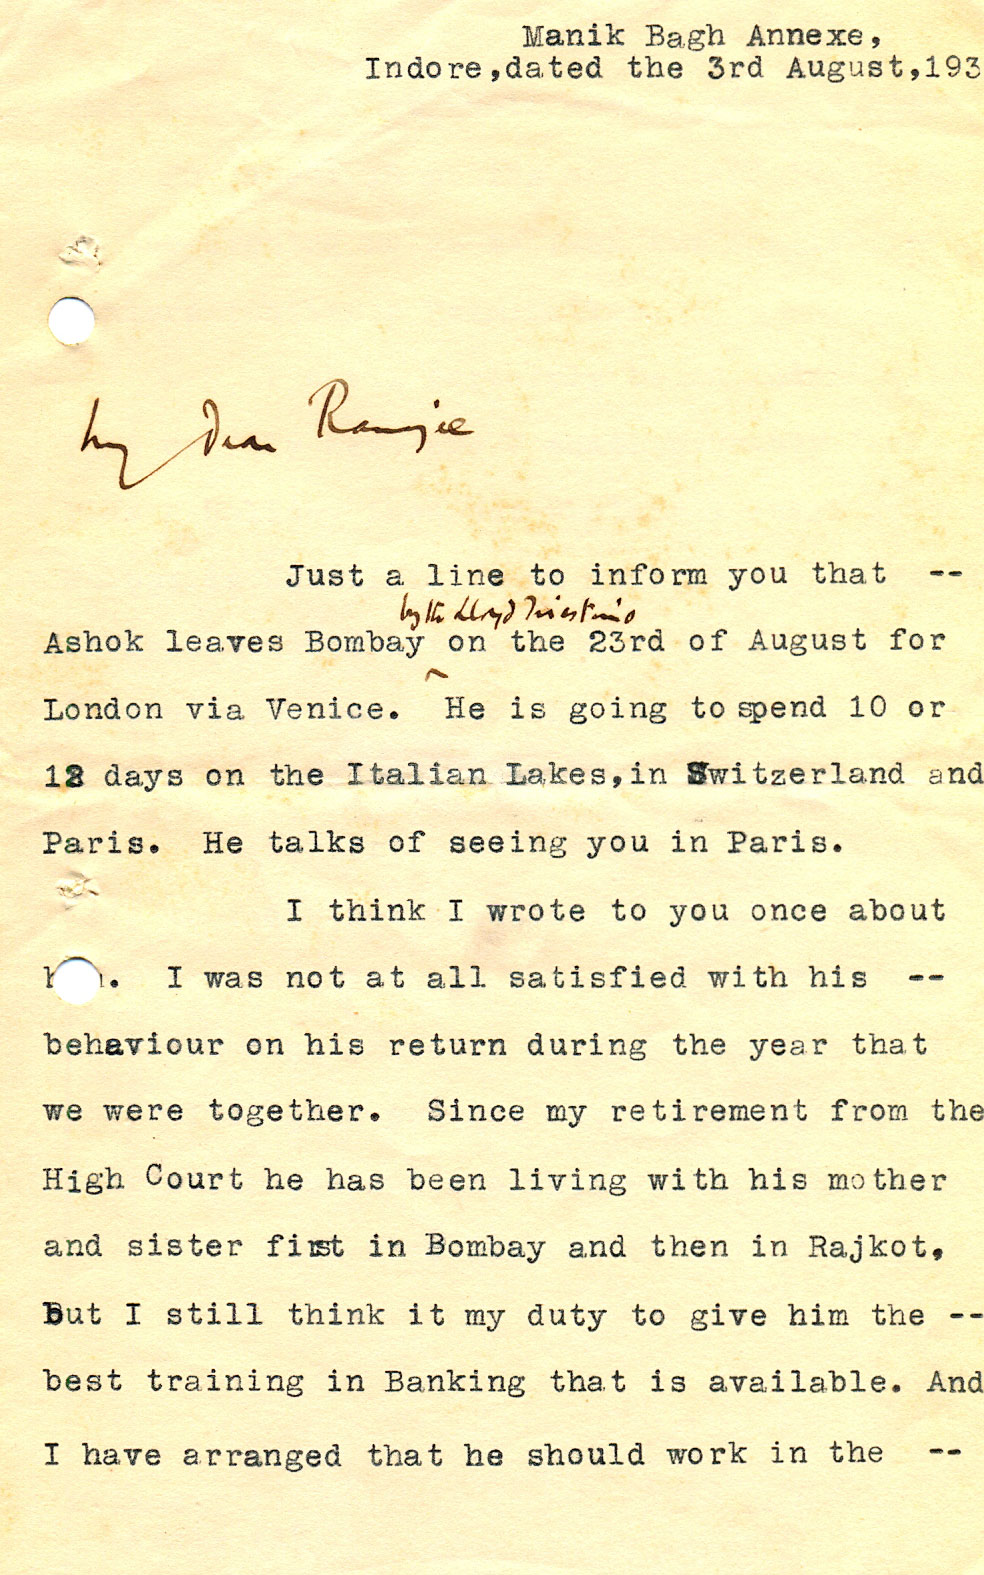 Manik Bagh Annexe,
Indore,dated the 3rd August,193
My Dear Ramjee
Just a line to inform you that --
by the Lloyd Triestino
Ashok leaves Bombay on the 23rd of August for
London via Venice. He is going to spend 10 or
12 days on the Italian Lakes,in Switzerland and
Paris. He talks of seeing you in Paris.
I think I wrote to you once about
h . I was not at all satisfied with his --
behaviour on his return during the year that
we were together. Since my retirement from the
High Court he has been living with his mother
and sister first in Bombay and then in Rajkot,
But I still think it my duty to give him the --
best training in Banking that is available. And
I have arranged that he should work in the --